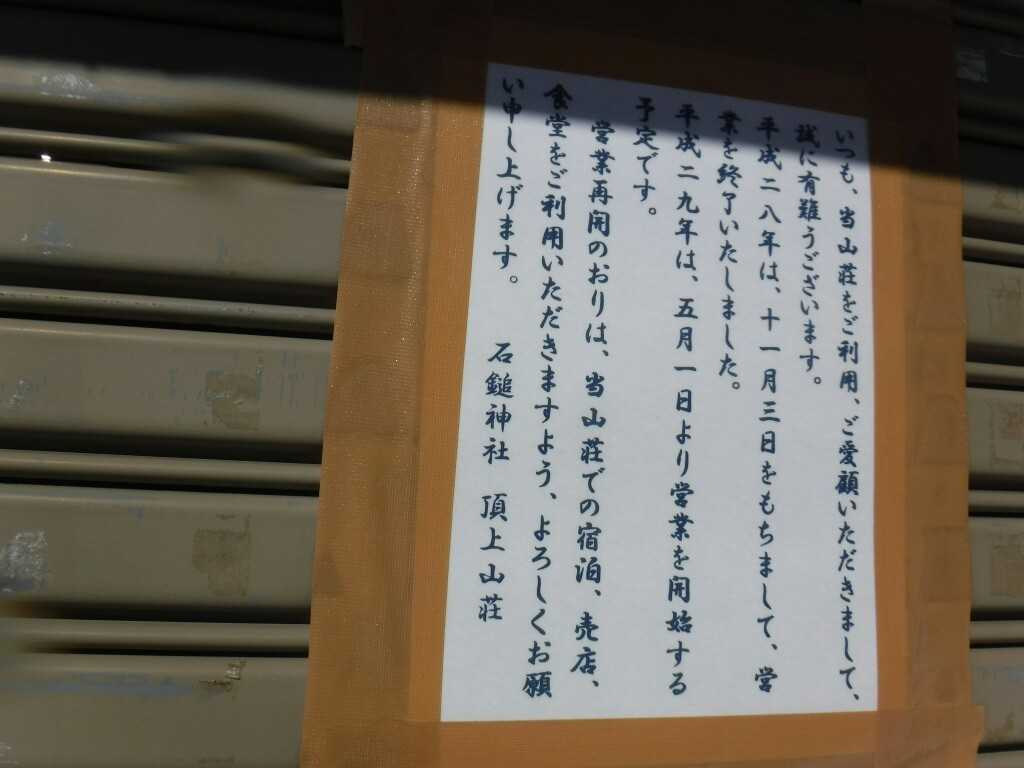 いつも、当山荘をご利用、ご愛顧いただきまして、
誠に有難うございます。
平成二八年は、十一月三日をもちまして、営
業を終了いたしました。
平成二九年は、五月一日より営業を開始する
予定です。
営業再開のおりは、当山荘での宿泊、売店、
食堂をご利用いただきますよう、よろしくお願
い申し上げます。
石鎚神社 頂上山荘